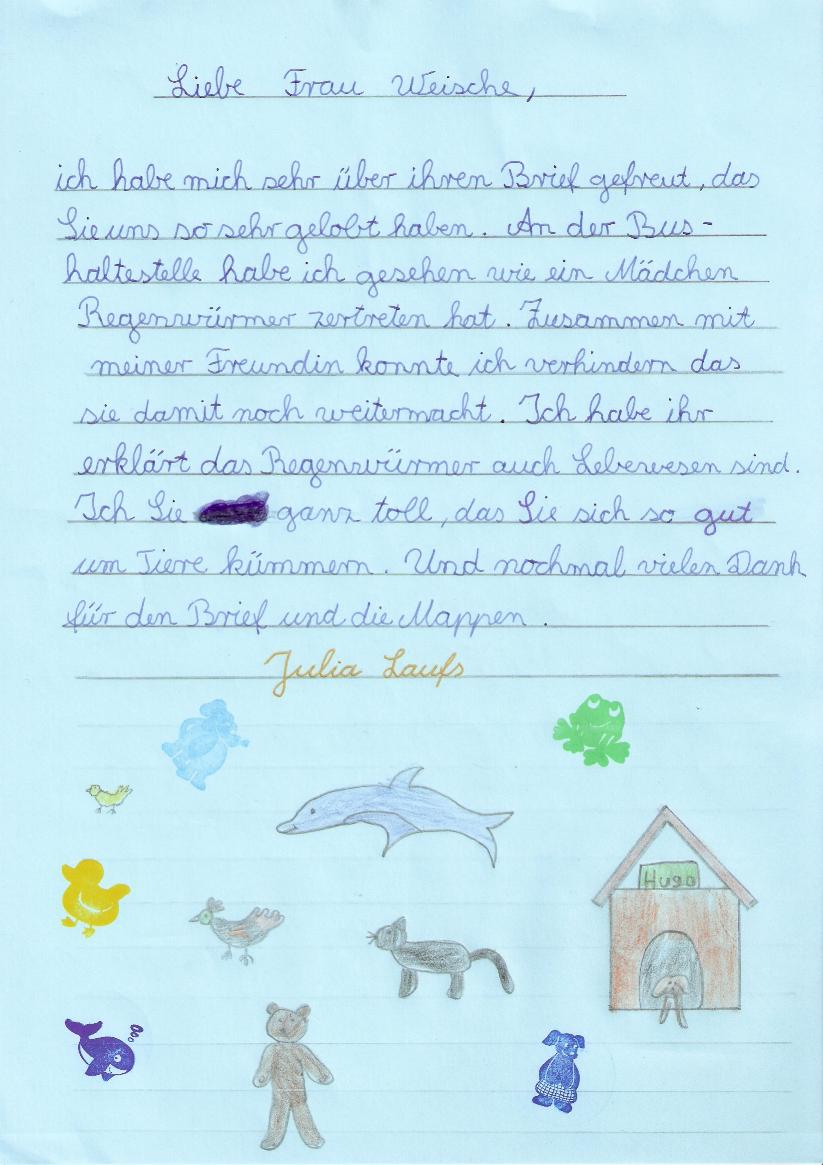 Liebe Frau Weische,
ich habe mich sehr über ihren Brief gefreut, das
Sie uns so sehr gelobt haben. An der Bus-
haltestelle habe ich gesehen wie ein Mädchen
Regenwürmer zertreten hat. Zusammen mit
meiner Freundin konnte ich verhindern das
sie damit noch weitermacht. Ich habe ihr
erklärt das Regenwürmer auch Lebewesen sind.
Ich Sie ganz toll, das Sie sich so gut
um Tiere kümmern. Und nochmal vielen Dank
für den Brief und die Mappen.
Julia Laufs
Hugo